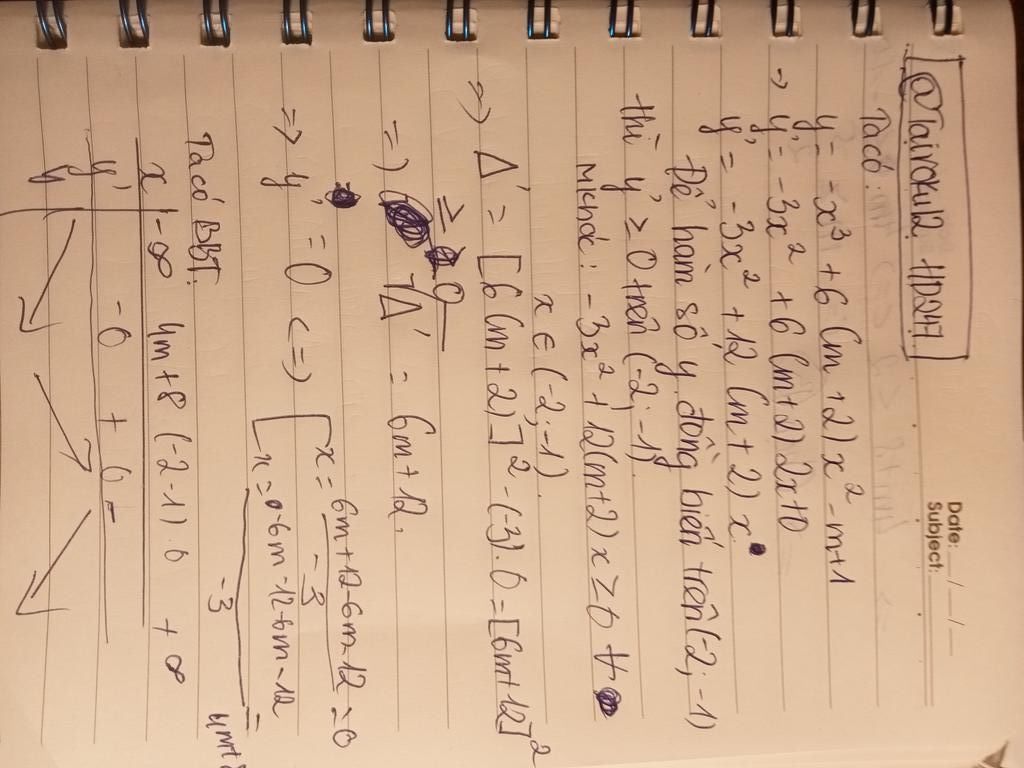 Date: __/__/__
Subject:
@Tairoku12 HD247
Ta có:
y = -x³ + 6(m+2)x² - m+1
→ y' = -3x² + 6(m+2)2x+0
y' = -3x² + 12(m+2)x
Để hàm số y đồng biến trên (-2; -1)
thì y' ≥ 0 trên (-2; -1)
Mkhác: -3x² + 12(m+2)x ≥ 0 ∀
x ∈ (-2; -1).
=> Δ' = [6(m+2)]² - (-3).0 = [6m+12]²
≥ 0
=> √Δ' = 6m+12.
=> y' = 0 <=> [ x = 6m+12-6m-12 / -3 = 0
x = -6m-12-6m-12 / -3 =
Ta có BBT:
x | -∞ 4m+8 (-2 -1) 0 +∞
y' | - 0 + 0 -
y